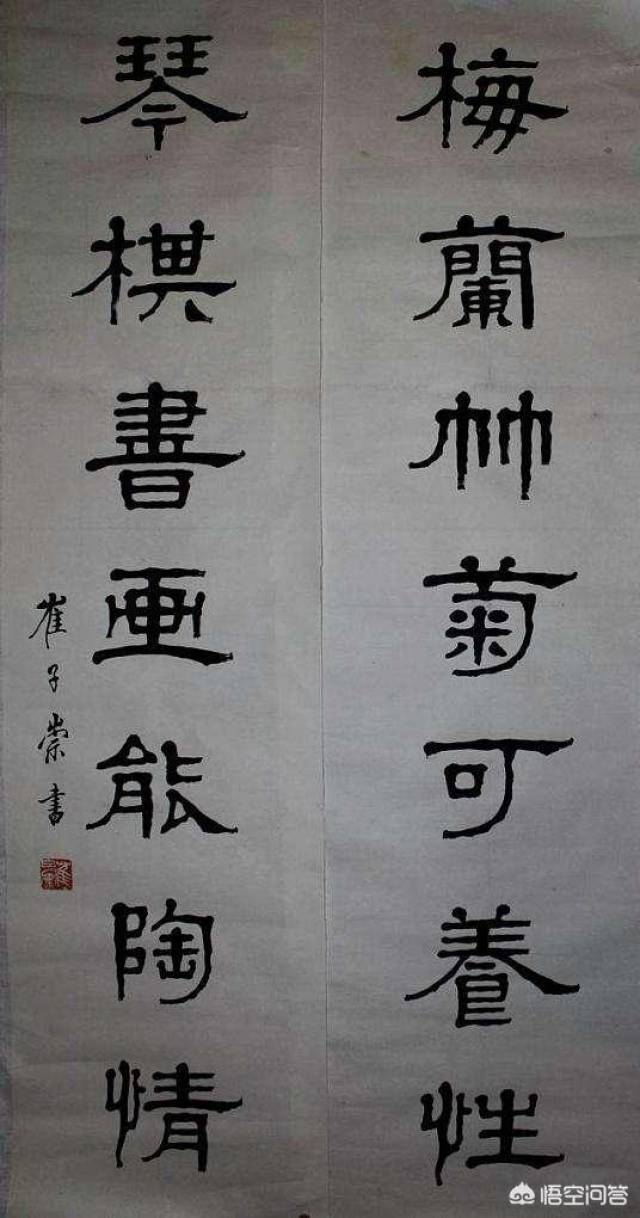 梅蘭竹菊可養性
琴棋書画能陶情
崔子崇书
悟空问答